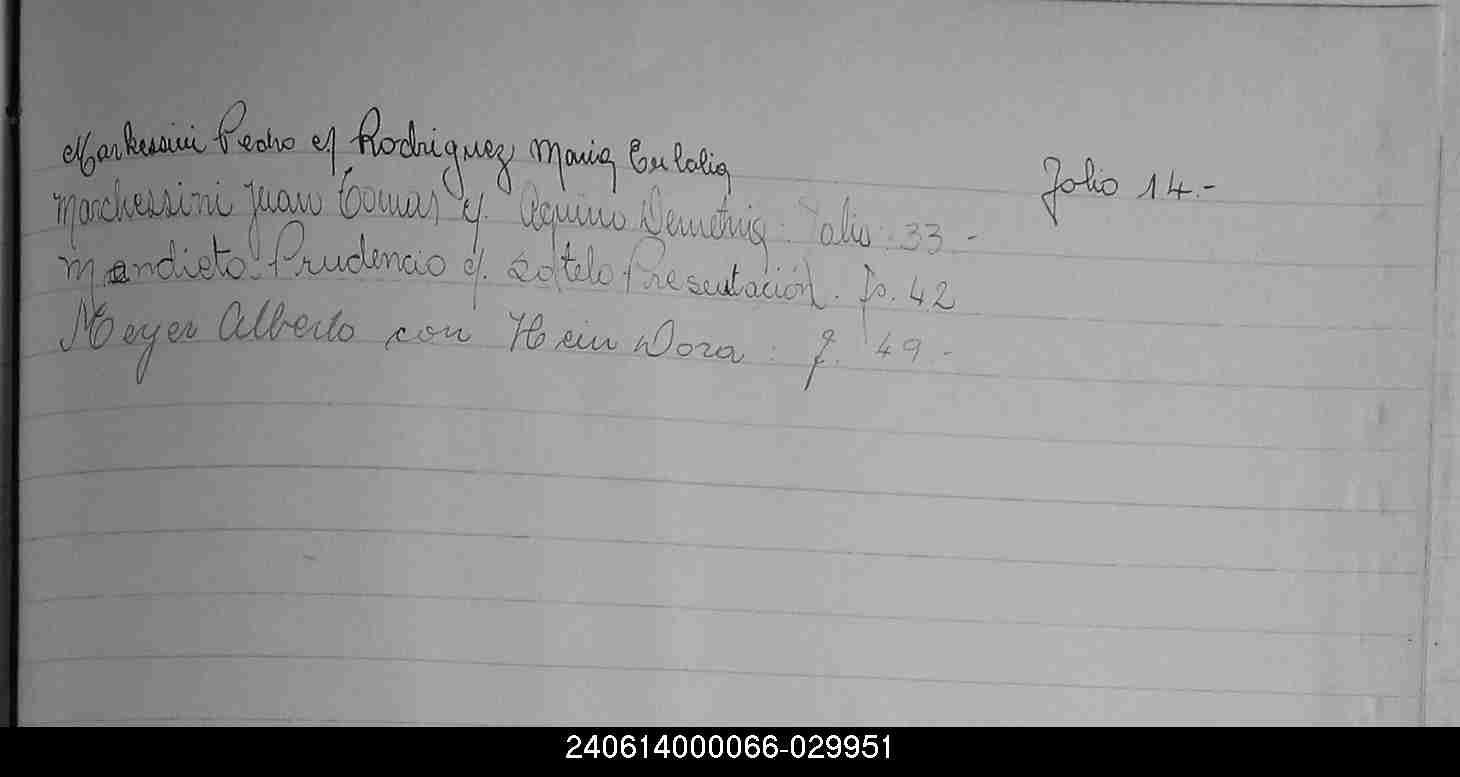 Markessini Pedro c/ Rodriguez Maria Eulalia Folio 14.-
Marchessini Juan Tomas c/. Aquino Demetria: Folio: 33 -
Mendieta Prudencio c/. Sotelo Presentación. fo. 42
Meyer Alberto con Hein Dora: f. 49.-
240614000066-029951